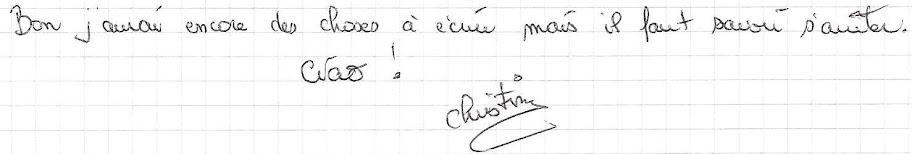 Bon j'aurai encore des choses à écrire mais il faut savoir s'arrêter.
Ciao !
Christine